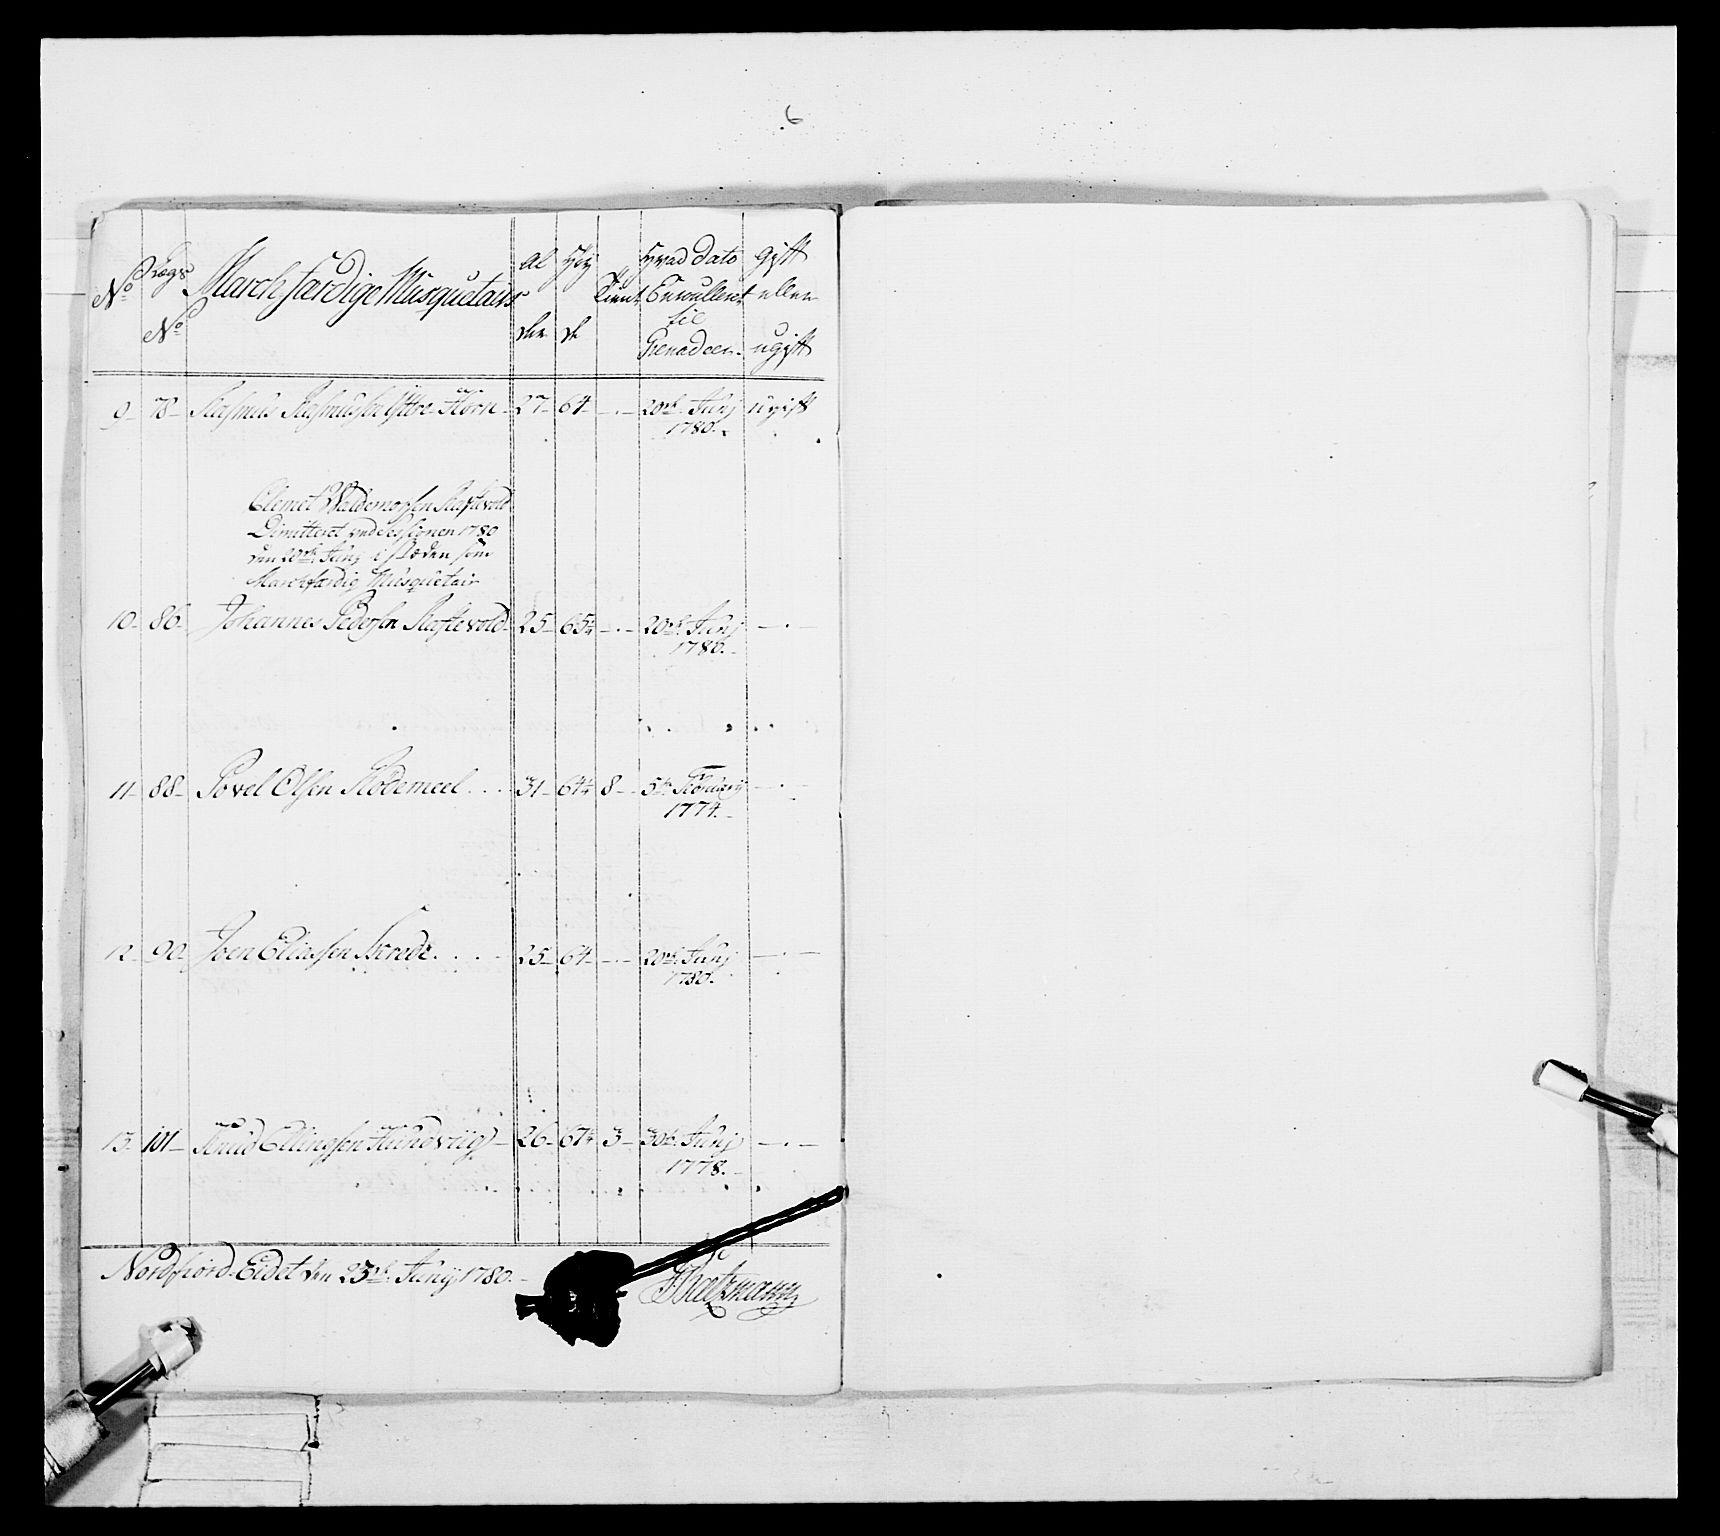 6
No Lægs No March færdige Musquetairs Al der Höy de Tient Hvad dato Enroulleret til Grenadeer. gift eller ugift
9- 78- Rasmus Rasmussen Ystre Horn- 27- 64- -.- 20de Junj 1780. ugift
Clemet Waldemorsen Raftevold
Dimitteret ved Sessionen 1780
den 20de Junj i stæden som
Marchfærdig Musquetair
10- 86- Johannes Pedersen Raftevold- 25- 65¼ -.- 20de Junj 1780. -.-
11- 88- Povel Olsen Rödemeel... 31- 64¼ 8- 5te Februarij 1774. -.-
12- 90- Joen Eliassen Skrede.... 25- 64- -.- 20de Junj 1780. -.-
13- 101- Knud Ellingsen Hundviig- 26- 67¼ 3- 30te Junj 1778. -.-
Nordfiord-Eidet den 23de Junij 1780.